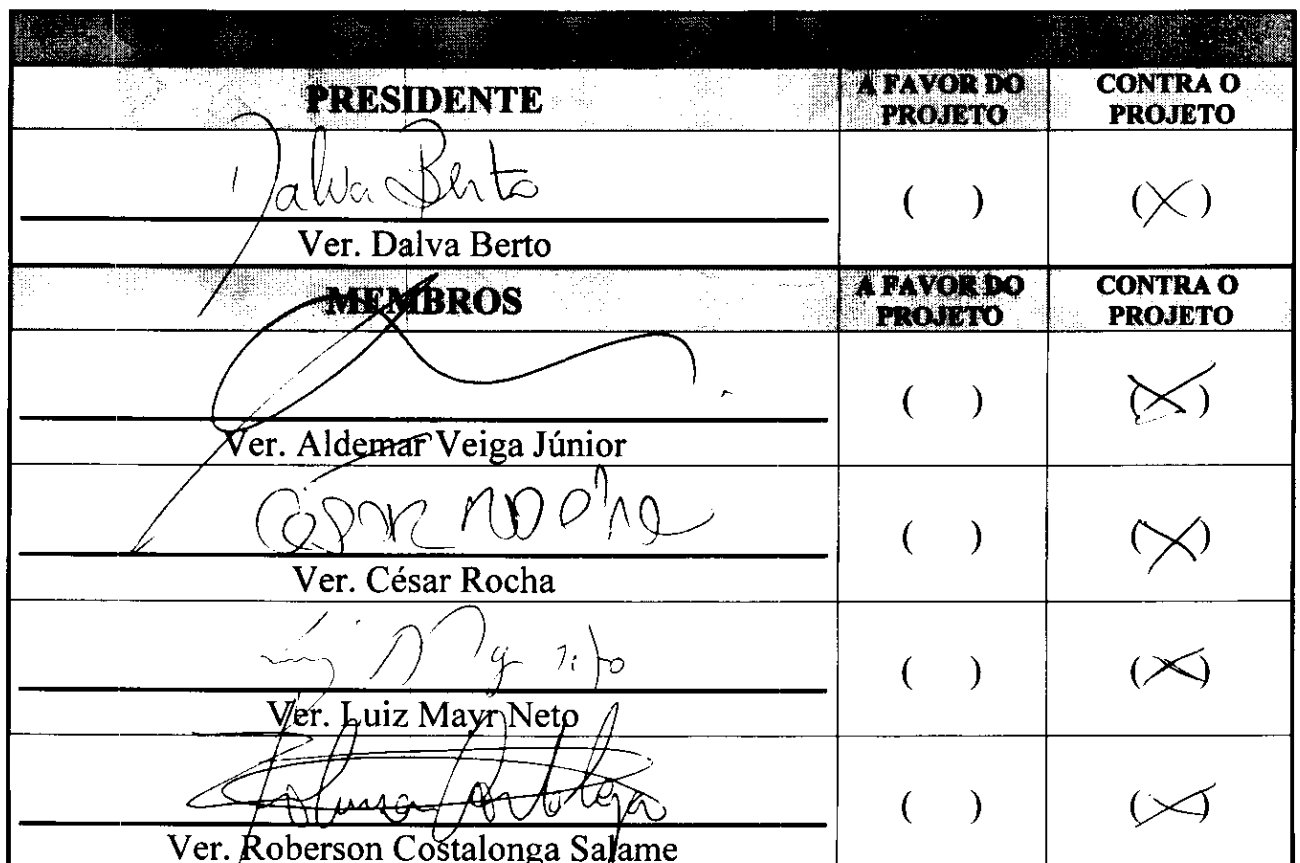 PRESIDENTE
A FAVOR DO PROJETO
CONTRA O PROJETO
Dalva Berto
( ) (X)
Ver. Dalva Berto
MEMBROS
A FAVOR DO PROJETO
CONTRA O PROJETO
( ) (X)
Ver. Aldemar Veiga Júnior
César Rocha
( ) (X)
Ver. César Rocha
( ) (X)
Ver. Luiz Mayr Neto
( ) (X)
Ver. Roberson Costalonga Salame